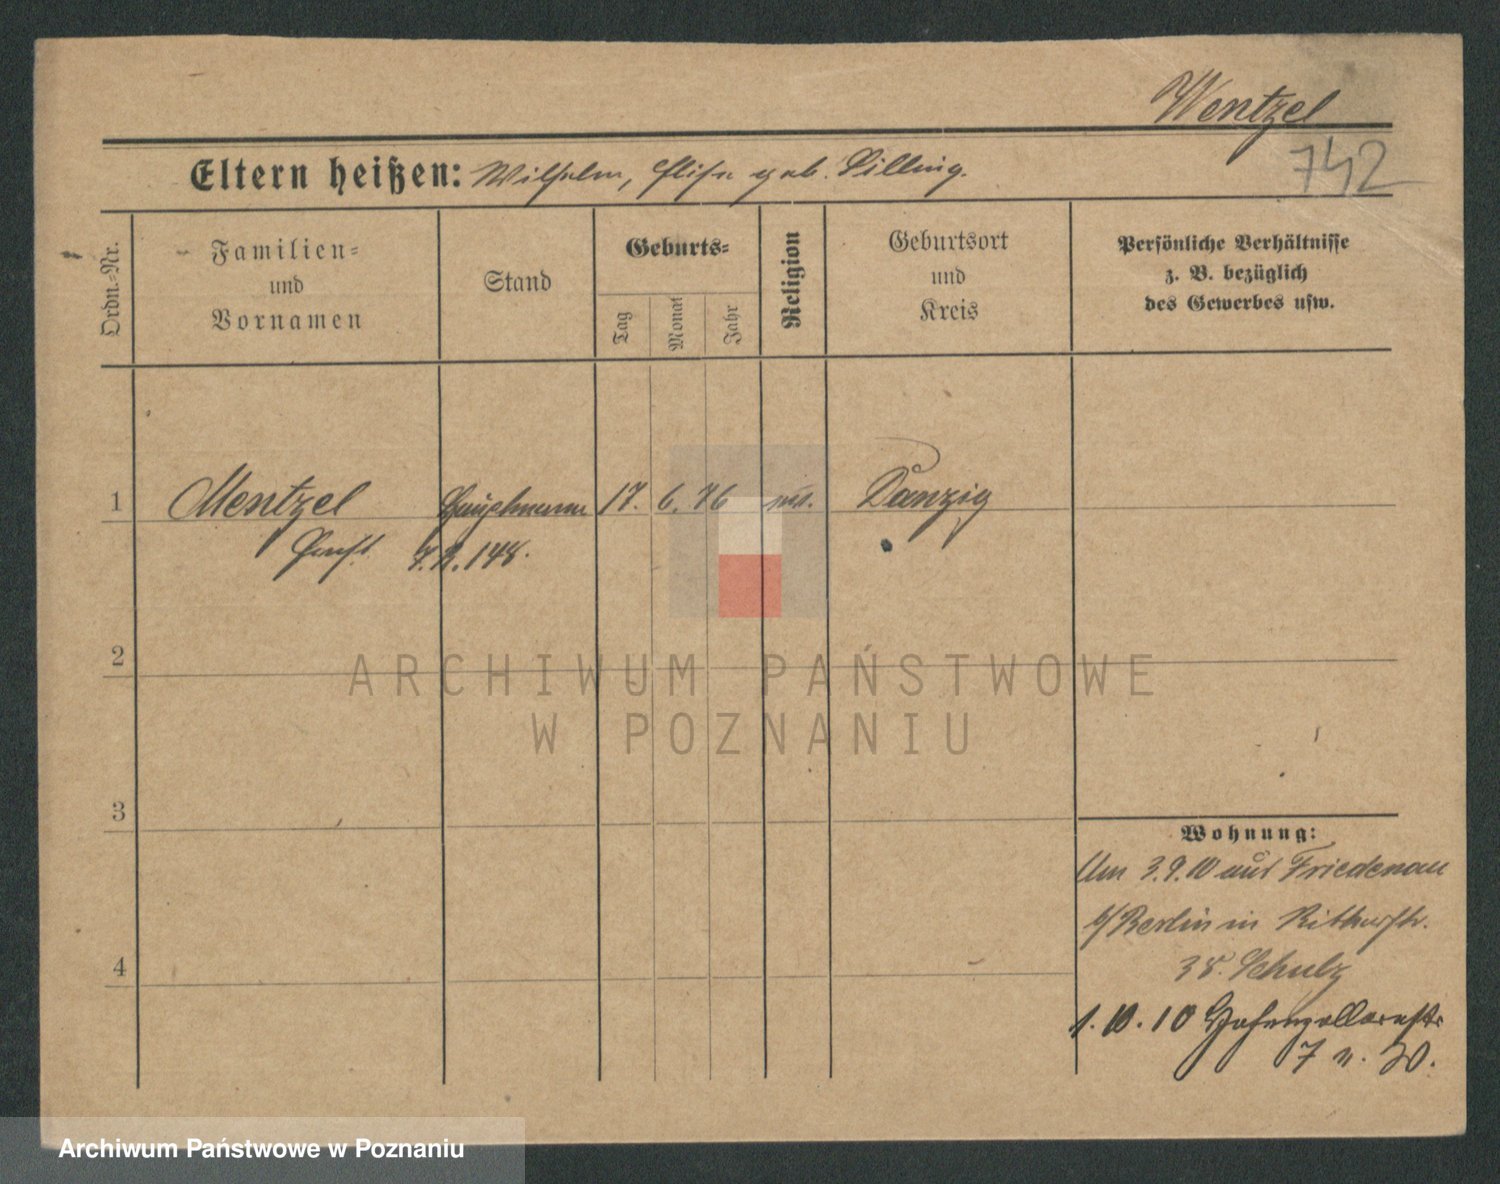 Wentzel
742
Eltern heißen: Wilhelm, Elise geb. Billing.
Ordn.-Nr.
Familien-
und
Vornamen
Stand
Geburts-
Tag
Monat
Jahr
Religion
Geburtsort
und
Kreis
Persönliche Verhältnisse
z. B. bezüglich
des Gewerbes usw.
1 Wentzel Hauptmann 17. 6. 76 ev. Danzig
Ernst J.R. 148.
2
3
4
Wohnung:
Am 3.9.10 aus Friedenau
b/Berlin in
35. Schulz
1.10.10 Hohenzollernstr
7 n. 30.
ARCHIWUM PAŃSTWOWE
W POZNANIU
Archiwum Państwowe w Poznaniu